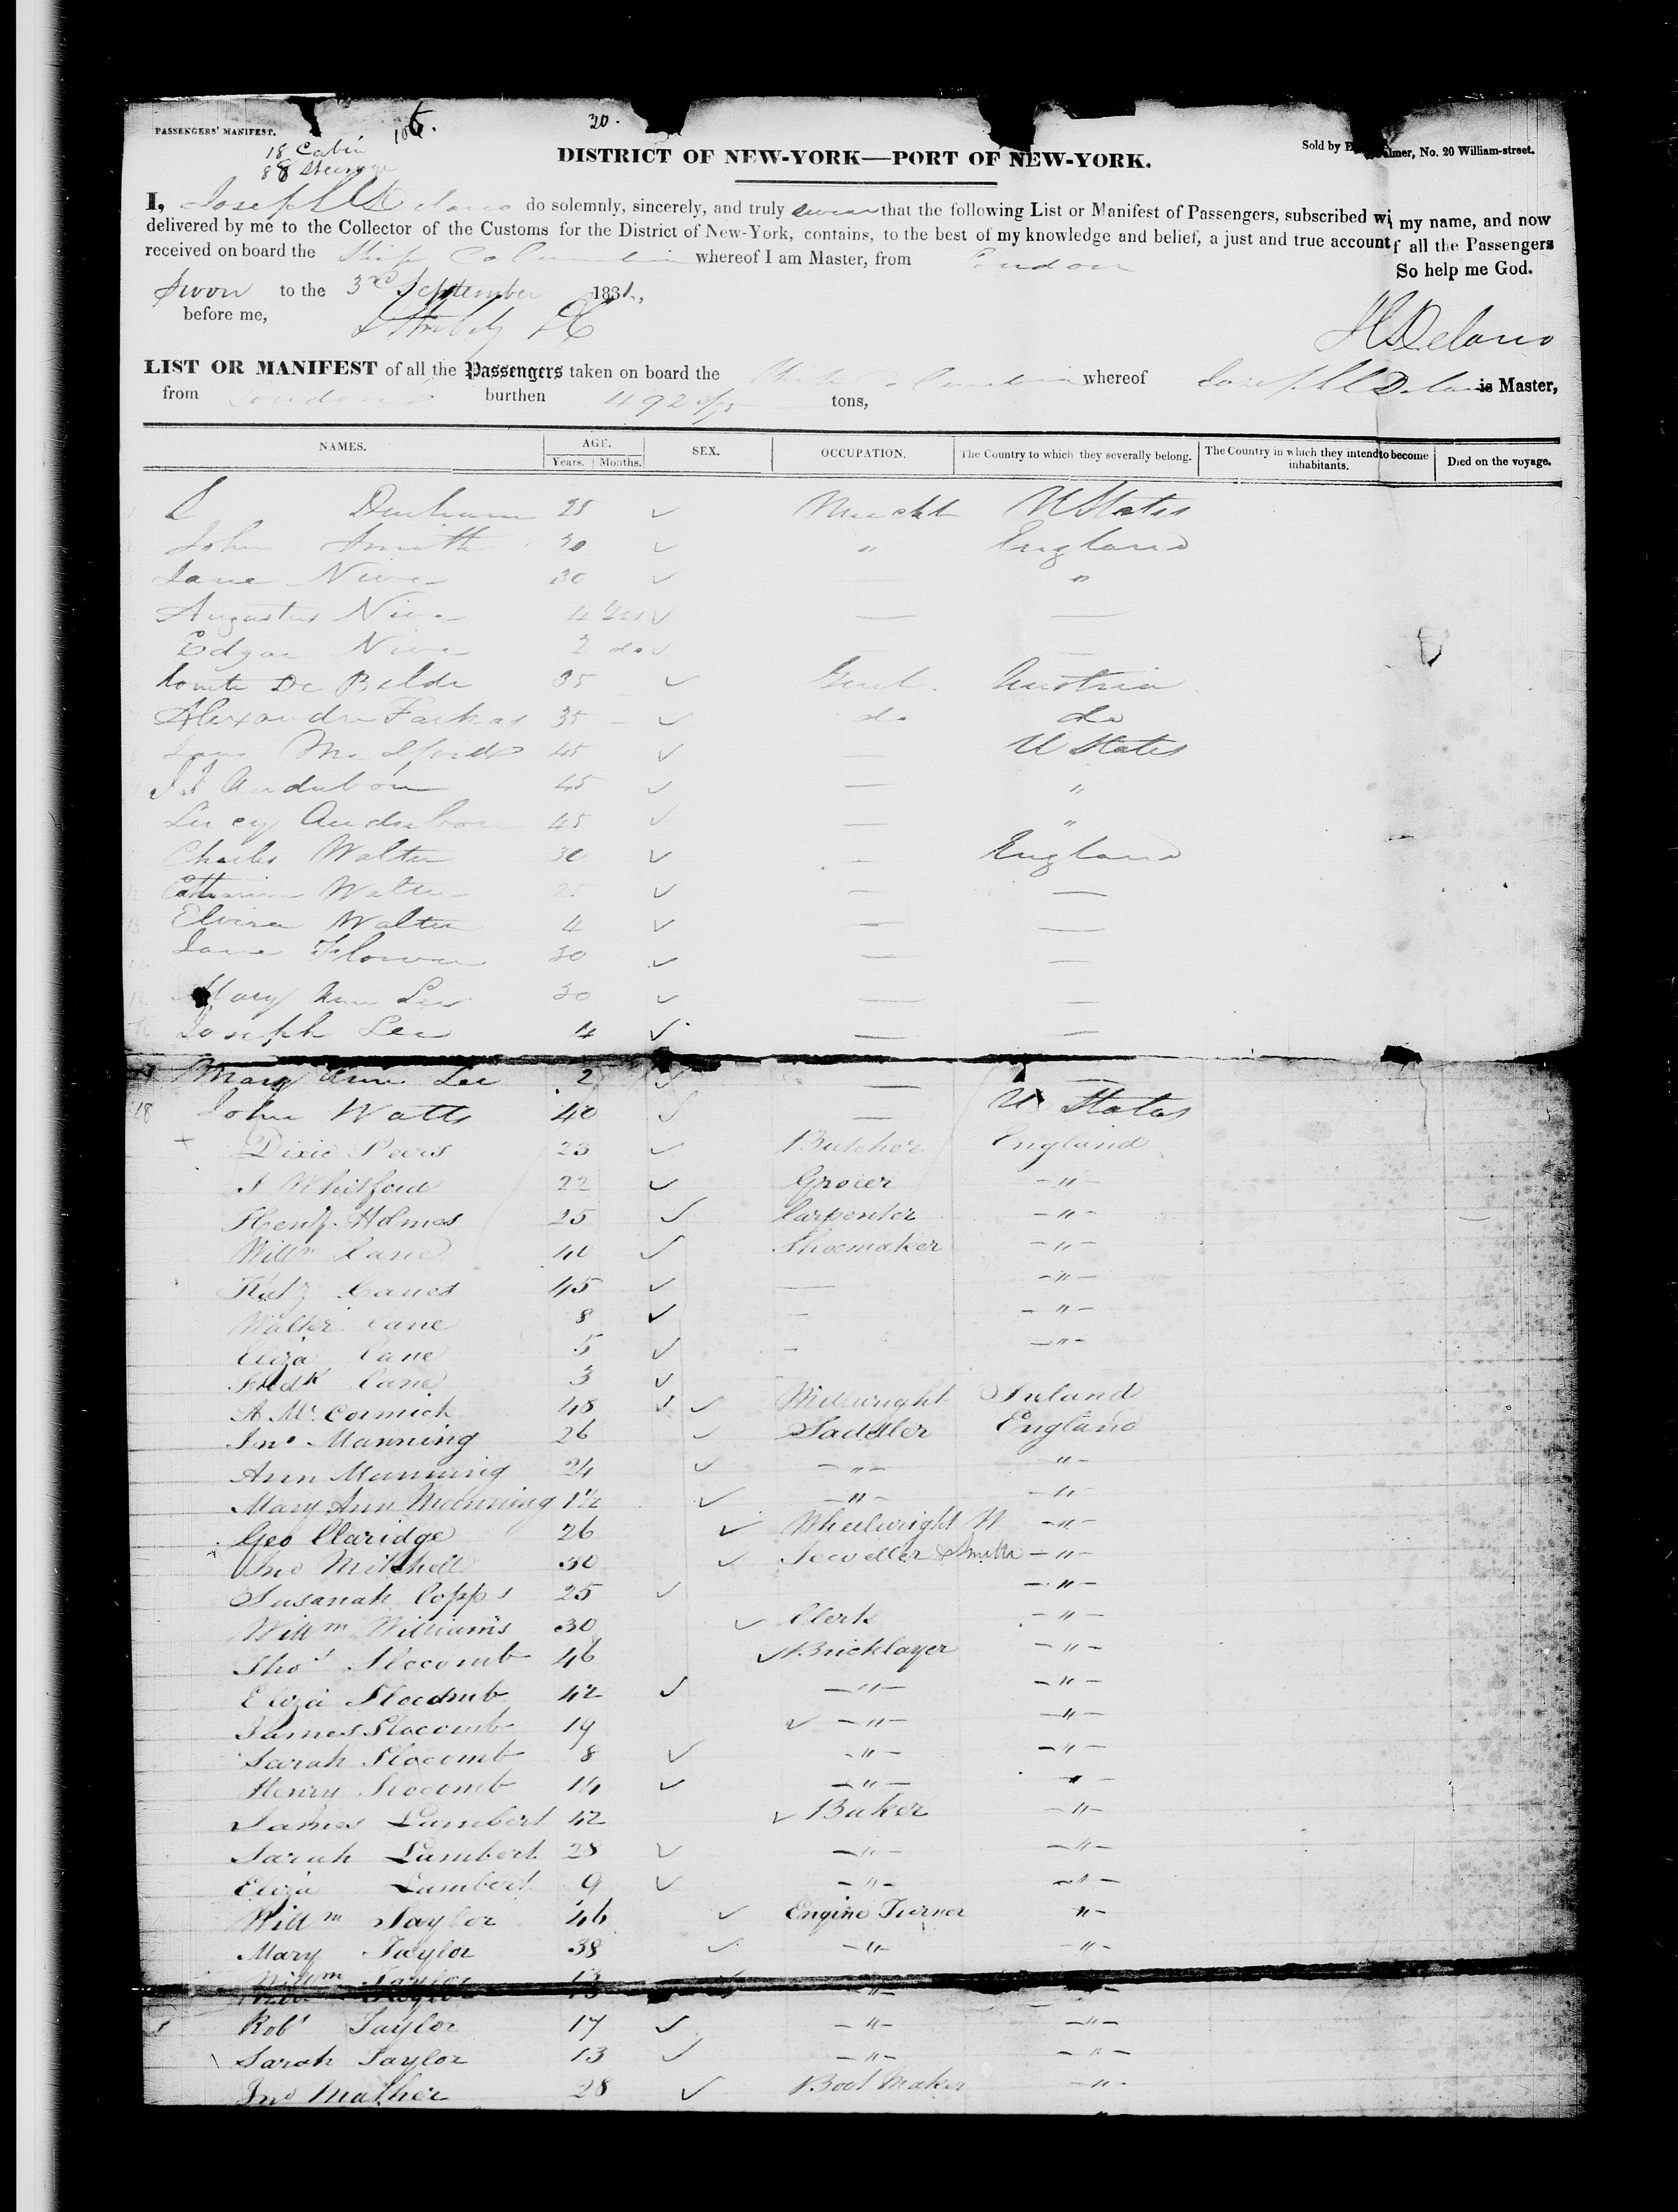 PASSENGERS' MANIFEST.
18 Cabin
88 Steerage
106.
20.
DISTRICT OF NEW-YORK—PORT OF NEW-YORK.
Sold by E. Palmer, No. 20 William-street.
I, Joseph C Delano do solemnly, sincerely, and truly swear that the following List or Manifest of Passengers, subscribed wi my name, and now
delivered by me to the Collector of the Customs for the District of New-York, contains, to the best of my knowledge and belief, a just and true account f all the Passengers
received on board the Ship Columbia whereof I am Master, from London
So help me God.
Swon to the 3rd September 1831,
before me,
J C Delano
LIST OR MANIFEST of all the Passengers taken on board the Ship Columbia whereof Joseph C Delano is Master,
from London burthen 492 tons,
NAMES. AGE. SEX. OCCUPATION. The Country to which they severally belong. The Country in which they intend to become inhabitants. Died on the voyage.
Years. Months.
L Durham 25 ✓ Mercht U States
John Smith 30 ✓ " England
Jane 30 ✓ "
Augustus 4 yrs ✓ — —
Edgar 2 do ✓ —
Comte De Belde 35 ✓ Gent. Austria
Alexandre Farkas 35 – ✓ do do
45 ✓ — U States
J J Audubon 45 ✓ — "
Lucy Audubon 45 ✓ — "
Charles Walter 30 ✓ – England
Catharine Walter 25 ✓ — —
13 Elvira Walter 4 ✓ — —
Jane Flower 30 ✓ — —
Mary Ann Lee 30 ✓ — —
Joseph Lee 4 ✓ — —
Mary Ann Lee 2 ✓ — —
18 John Watts 40 ✓ — U States
+ Dixie Peers 23 ✓ Butcher England
J Whitford 22 ✓ Grocer - " -
Heny. Holmes 25 ✓ Carpenter - " -
Willm Cane 40 ✓ Shoemaker - " -
Canes 45 ✓ — - " -
Walter Cane 8 ✓ - - " -
Eliza Cane 5 ✓ - - " -
Fredk Cane 3 ✓
A Mc Cormick 48 ✓ ✓ Millwright Ireland
Jno Manning 26 ✓ Saddler England
Ann Manning 24 ✓ - " - - " -
Mary Ann Manning 1½ ✓ - " - - " -
Geo Claridge 26 ✓ Wheelwright - " -
Jno Mitchell 30 ✓ Jeweller Smith - " -
Susanah Copps 25 ✓ - " -
Willm Williams 30 ✓ Clerk - " -
Thos Slocomb 46 ✓ Bricklayer - " -
Eliza Slocomb 42 ✓ - " - - " -
James Slocomb 19 ✓ - " - - " -
Sarah Slocomb 8 ✓ - " - - " -
Henry Slocomb 14 ✓ - " - " -
James Lambert 42 ✓ Baker - " -
Sarah Lambert 28 ✓ - " - - " -
Eliza Lambert 9 ✓ - " - - " -
Willm Taylor 46 ✓ Engine Turner " -
Mary Taylor 38 ✓ - " - - " -
Willm Taylor 13 ✓ - " - - " -
Robt Taylor 17 ✓ - " - - " -
Sarah Taylor 13 ✓ - " - - " -
Jno Mather 28 ✓ Boot Maker - " -